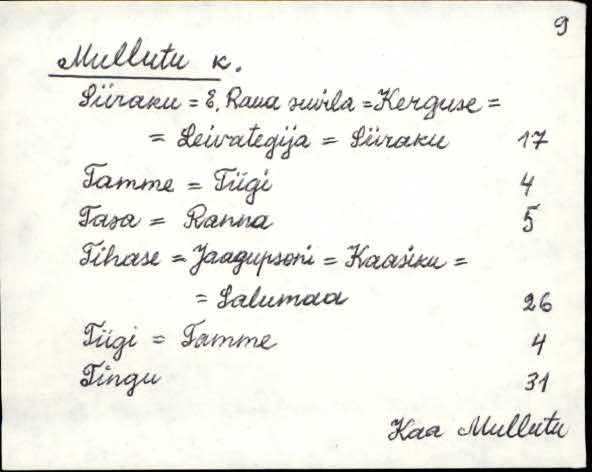 9
Mullutu k.
Siiraku = E. Raua suvila = Kerguse =
= Leivategija = Siiraku 17
Tamme = Tiigi 4
Tasa = Ranna 5
Tihase = Jaagupsoni = Kaasiku =
= Salumaa 26
Tiigi = Tamme 4
Tingu 31
Kaa Mullutu